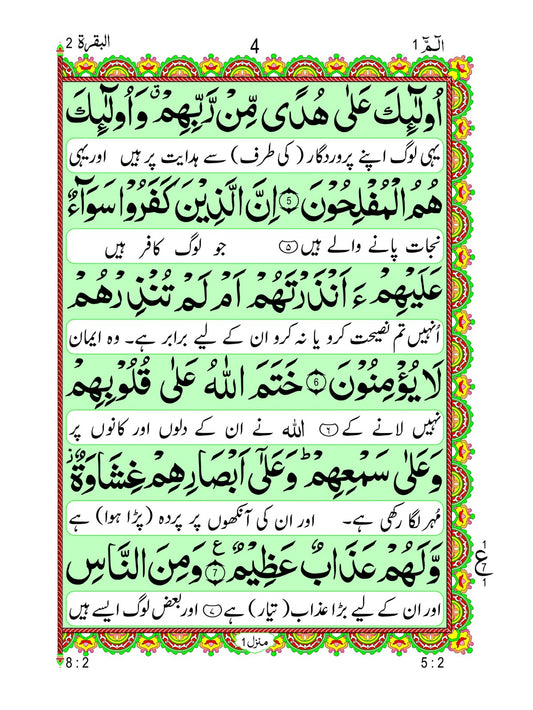 الٓمّٓ 1
4
البقرة 2
اُولٰٓئِكَ عَلٰی هُدًی مِّنْ رَّبِّهِمْ ۗ وَاُولٰٓئِكَ
یہی لوگ اپنے پروردگار ( کی طرف) سے ہدایت پر ہیں اور یہی
هُمُ الْمُفْلِحُوْنَ ۝5 اِنَّ الَّذِیْنَ كَفَرُوْا سَوَآءٌ
نجات پانے والے ہیں ۵ جو لوگ کافر ہیں
عَلَیْهِمْ ءَاَنْذَرْتَهُمْ اَمْ لَمْ تُنْذِرْهُمْ
اُنہیں تم نصیحت کرو یا نہ کرو ان کے لیے برابر ہے۔ وہ ایمان
لَا یُؤْمِنُوْنَ ۝6 خَتَمَ اللّٰهُ عَلٰی قُلُوْبِهِمْ
نہیں لانے کے ۶ اللہ نے ان کے دلوں اور کانوں پر
وَعَلٰی سَمْعِهِمْ ؕ وَعَلٰۤی اَبْصَارِهِمْ غِشَاوَةٌ ؗ
مُہر لگا رکھی ہے۔ اور ان کی آنکھوں پر پردہ (پڑا ہوا) ہے
وَّلَهُمْ عَذَابٌ عَظِیْمٌ ۝7 ع وَمِنَ النَّاسِ
اور ان کے لیے بڑا عذاب( تیار) ہے ۷ اور بعض لوگ ایسے ہیں
1
ع
7
1
منزل 1
5 : 2
8 : 2